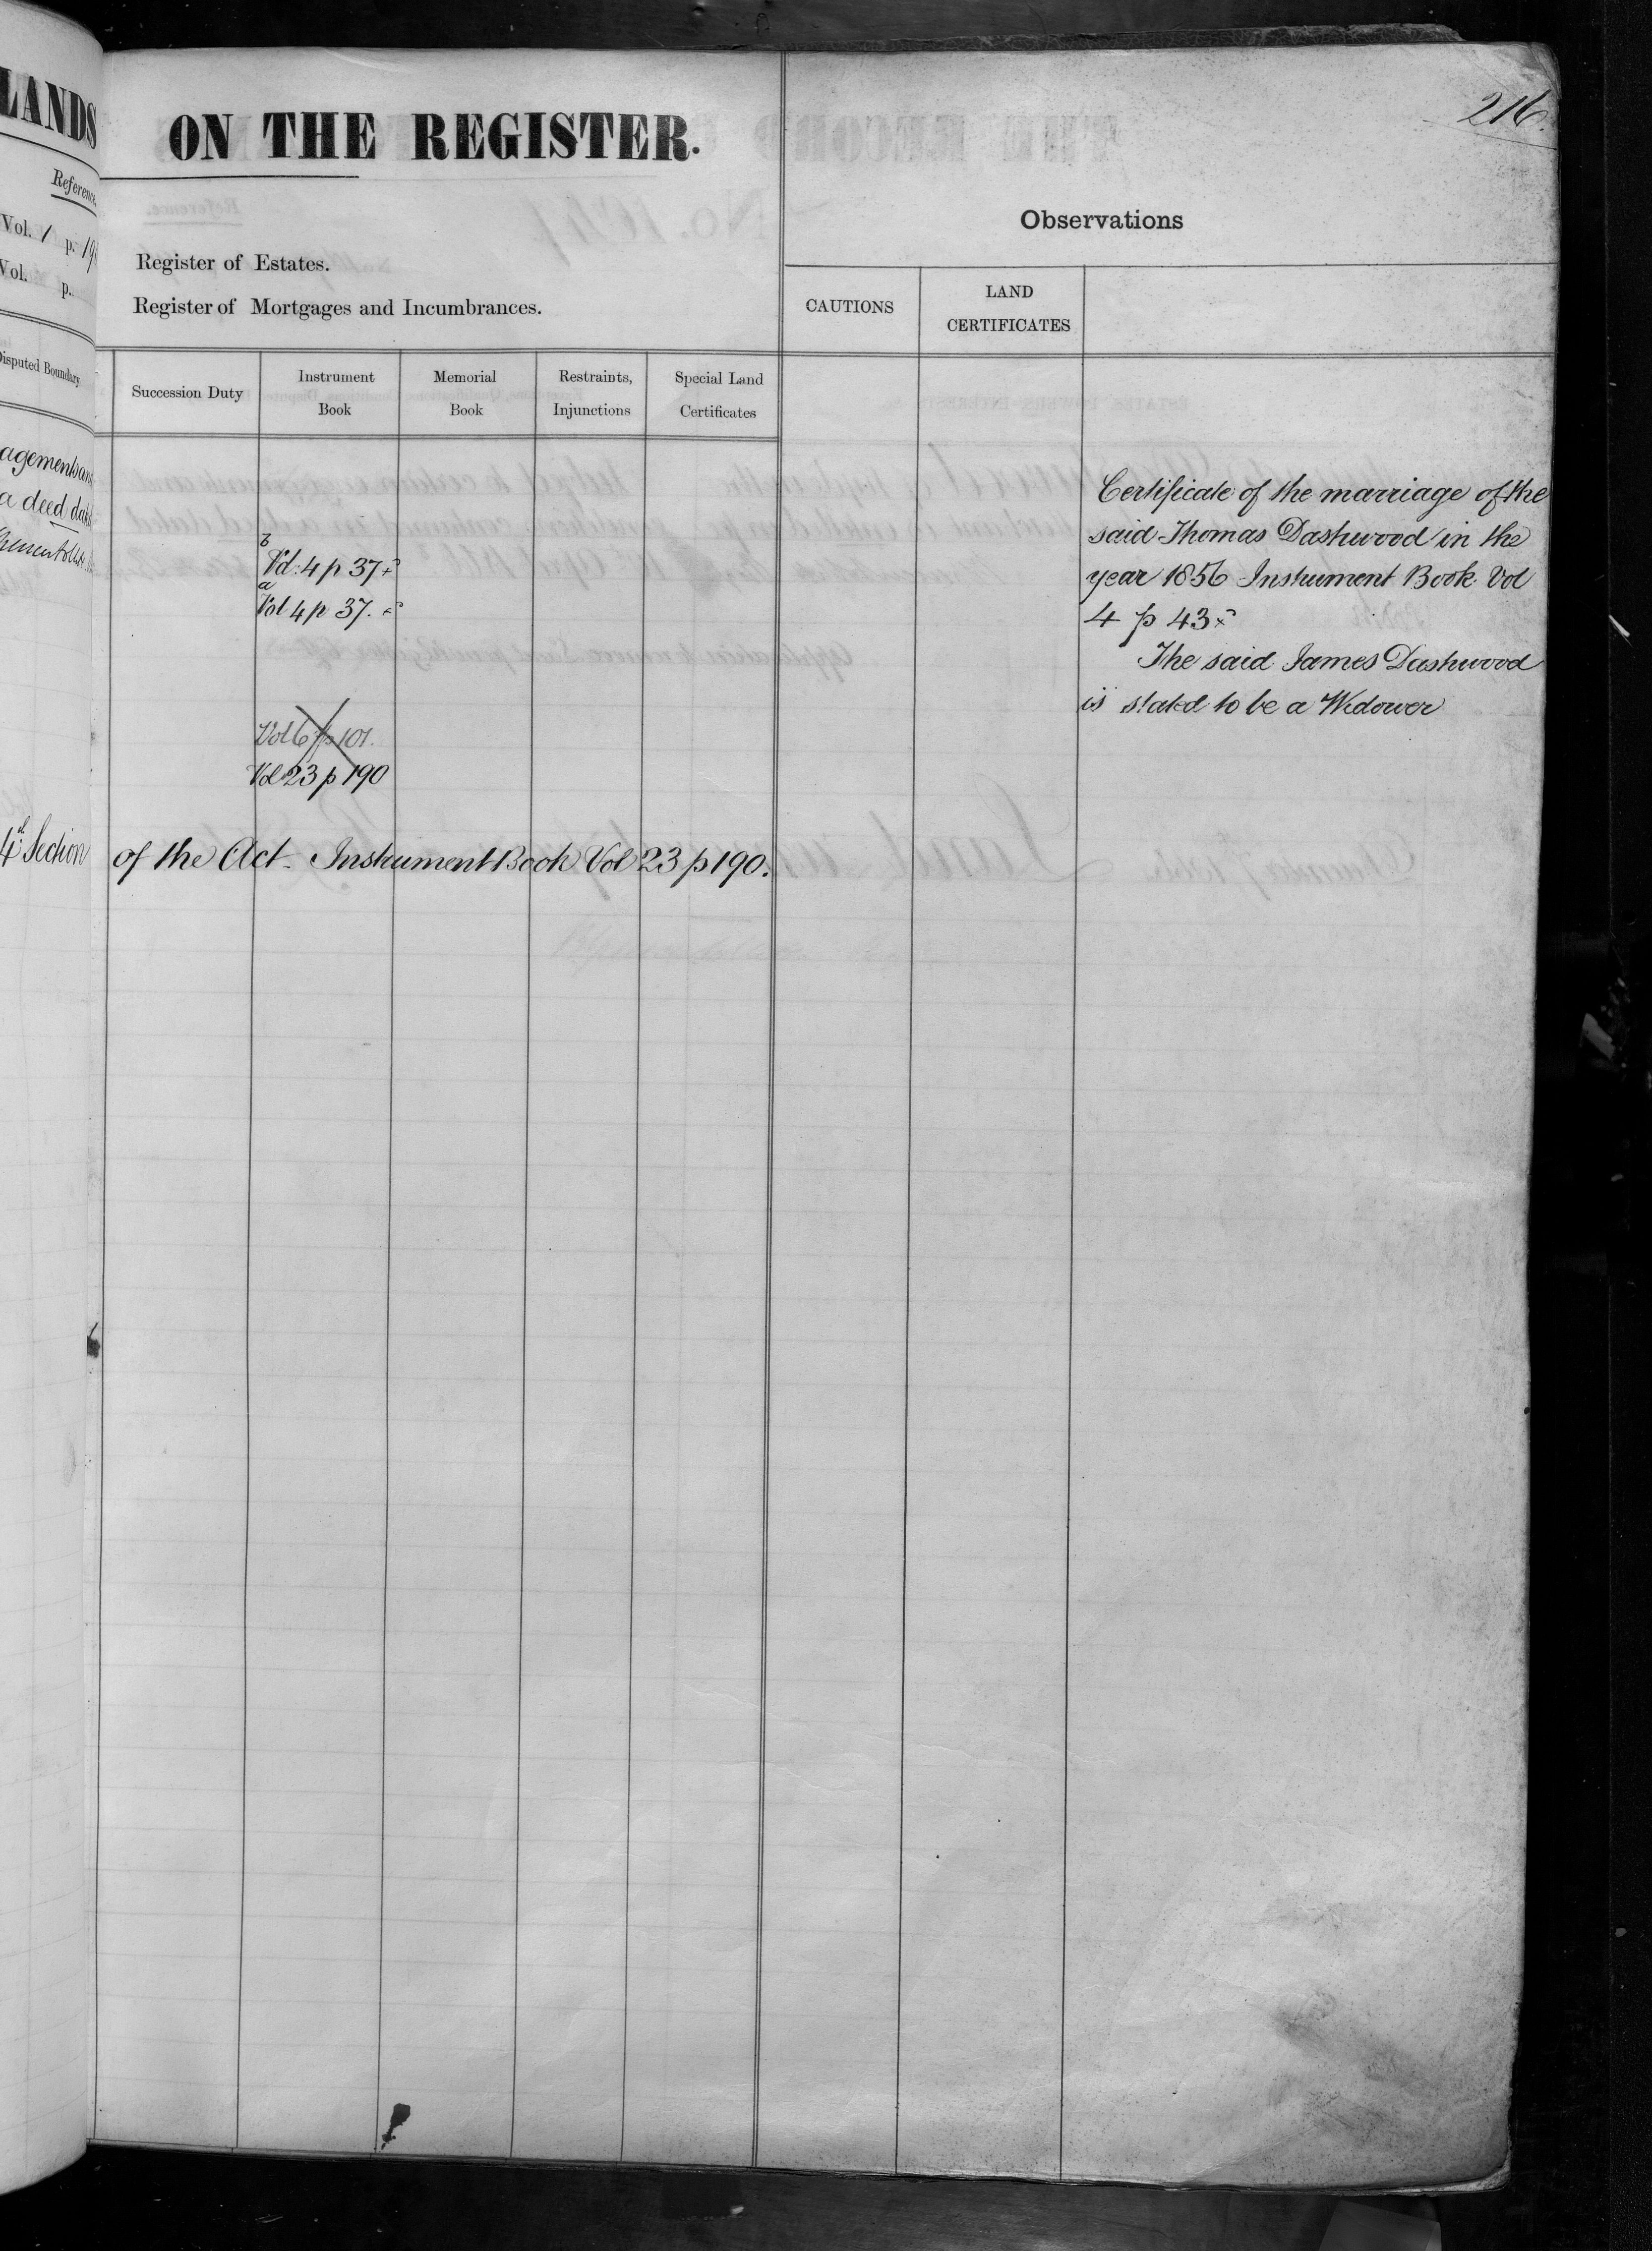 LANDS
Reference.
Vol. 1 p. 19
Vol. p.
Disputed Boundary
agements and
a deed
4th Section
ON THE REGISTER.
Register of Estates.
Register of Mortgages and Incumbrances.
Succession Duty
Instrument
Book
Memorial
Book
Restraints,
Injunctions
Special Land
Certificates
b
Vol: 4 p 37
a
Vol 4 p 37.
Vol 6 p 101.
Vol 23 p 190
of the Act - Instrument Book Vol 23 p 190.
216.
Observations
CAUTIONS
LAND
CERTIFICATES
Certificate of the marriage of the
said Thomas Dashwood in the
year 1856 Instrument Book Vol
4 p 43
The said James Dashwood
is stated to be a Widower